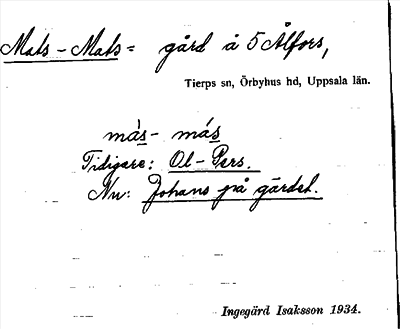 Mats-Mats = gård å 5 Älfors,
Tierps sn, Örbyhus hd, Uppsala län.
màs- más
Tidigare: Ol-Pers.
Nu: Johans på gärdet.
Ingegärd Isaksson 1934.